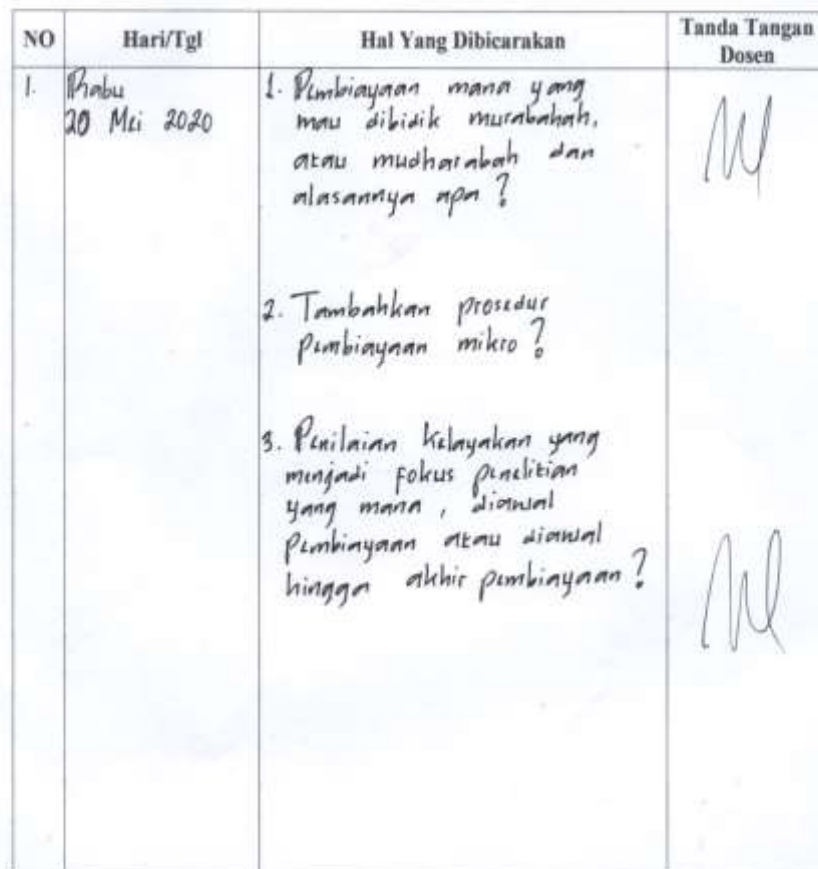 NO Hari/Tgl Hal Yang Dibicarakan Tanda Tangan Dosen
1. Rabu
20 Mei 2020
1. Pembiayaan mana yang
mau dibidik murabahah,
atau mudharabah dan
alasannya apa ?
2. Tambahkan prosedur
pembiayaan mikro ?
3. Penilaian kelayakan yang
menjadi fokus penelitian
yang mana , diawal
pembiayaan atau diawal
hingga akhir pembiayaan ?